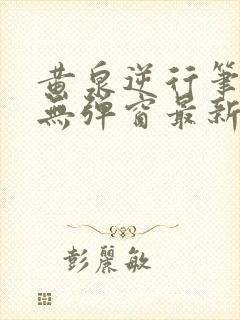 黄泉逆行筆
無彈窗最新
彭麗敏